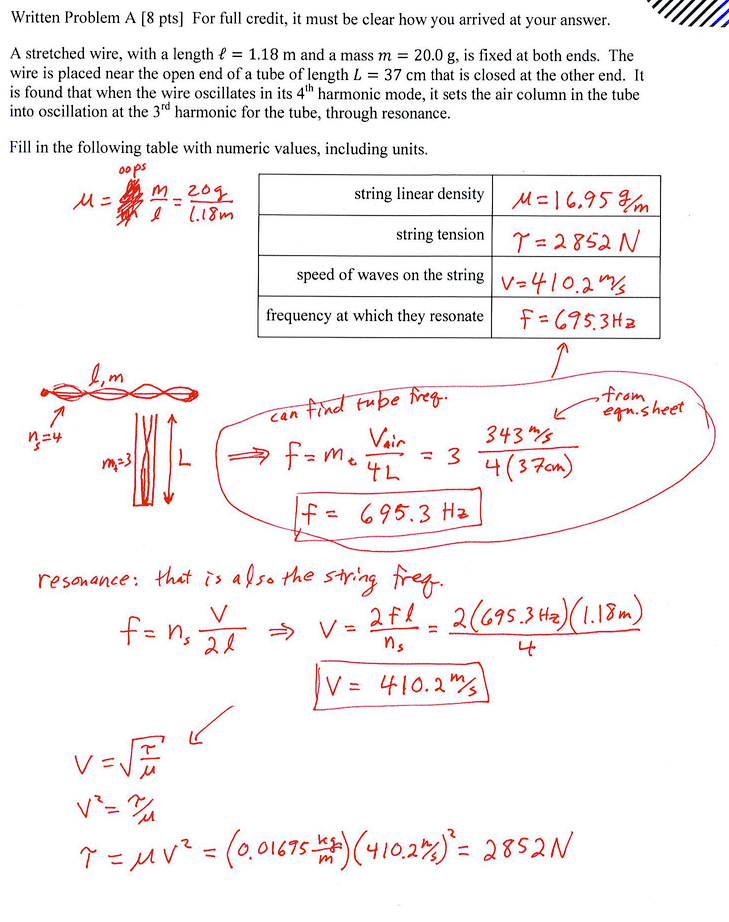 Written Problem A [8 pts]  For full credit, it must be clear how you arrived at your answer.
A stretched wire, with a length ℓ = 1.18 m and a mass m = 20.0 g, is fixed at both ends.  The
wire is placed near the open end of a tube of length L = 37 cm that is closed at the other end.  It
is found that when the wire oscillates in its 4th harmonic mode, it sets the air column in the tube
into oscillation at the 3rd harmonic for the tube, through resonance.
Fill in the following table with numeric values, including units.
oops
μ = m/ℓ = 20g/1.18m
string linear density μ = 16.95 g/m
string tension τ = 2852 N
speed of waves on the string v = 410.2 m/s
frequency at which they resonate f = 695.3 Hz
ℓ, m
n_s = 4
m_t = 3
L
can find tube freq.
from eqn. sheet
⇒ f = m_t V_air/4L = 3 343 m/s / 4(37cm)
f = 695.3 Hz
resonance: that is also the string freq.
f = n_s V/2ℓ ⇒ V = 2fℓ/n_s = 2(695.3 Hz)(1.18 m)/4
V = 410.2 m/s
V = √(τ/μ)
V² = τ/μ
τ = μV² = (0.01695 kg/m)(410.2 m/s)² = 2852 N